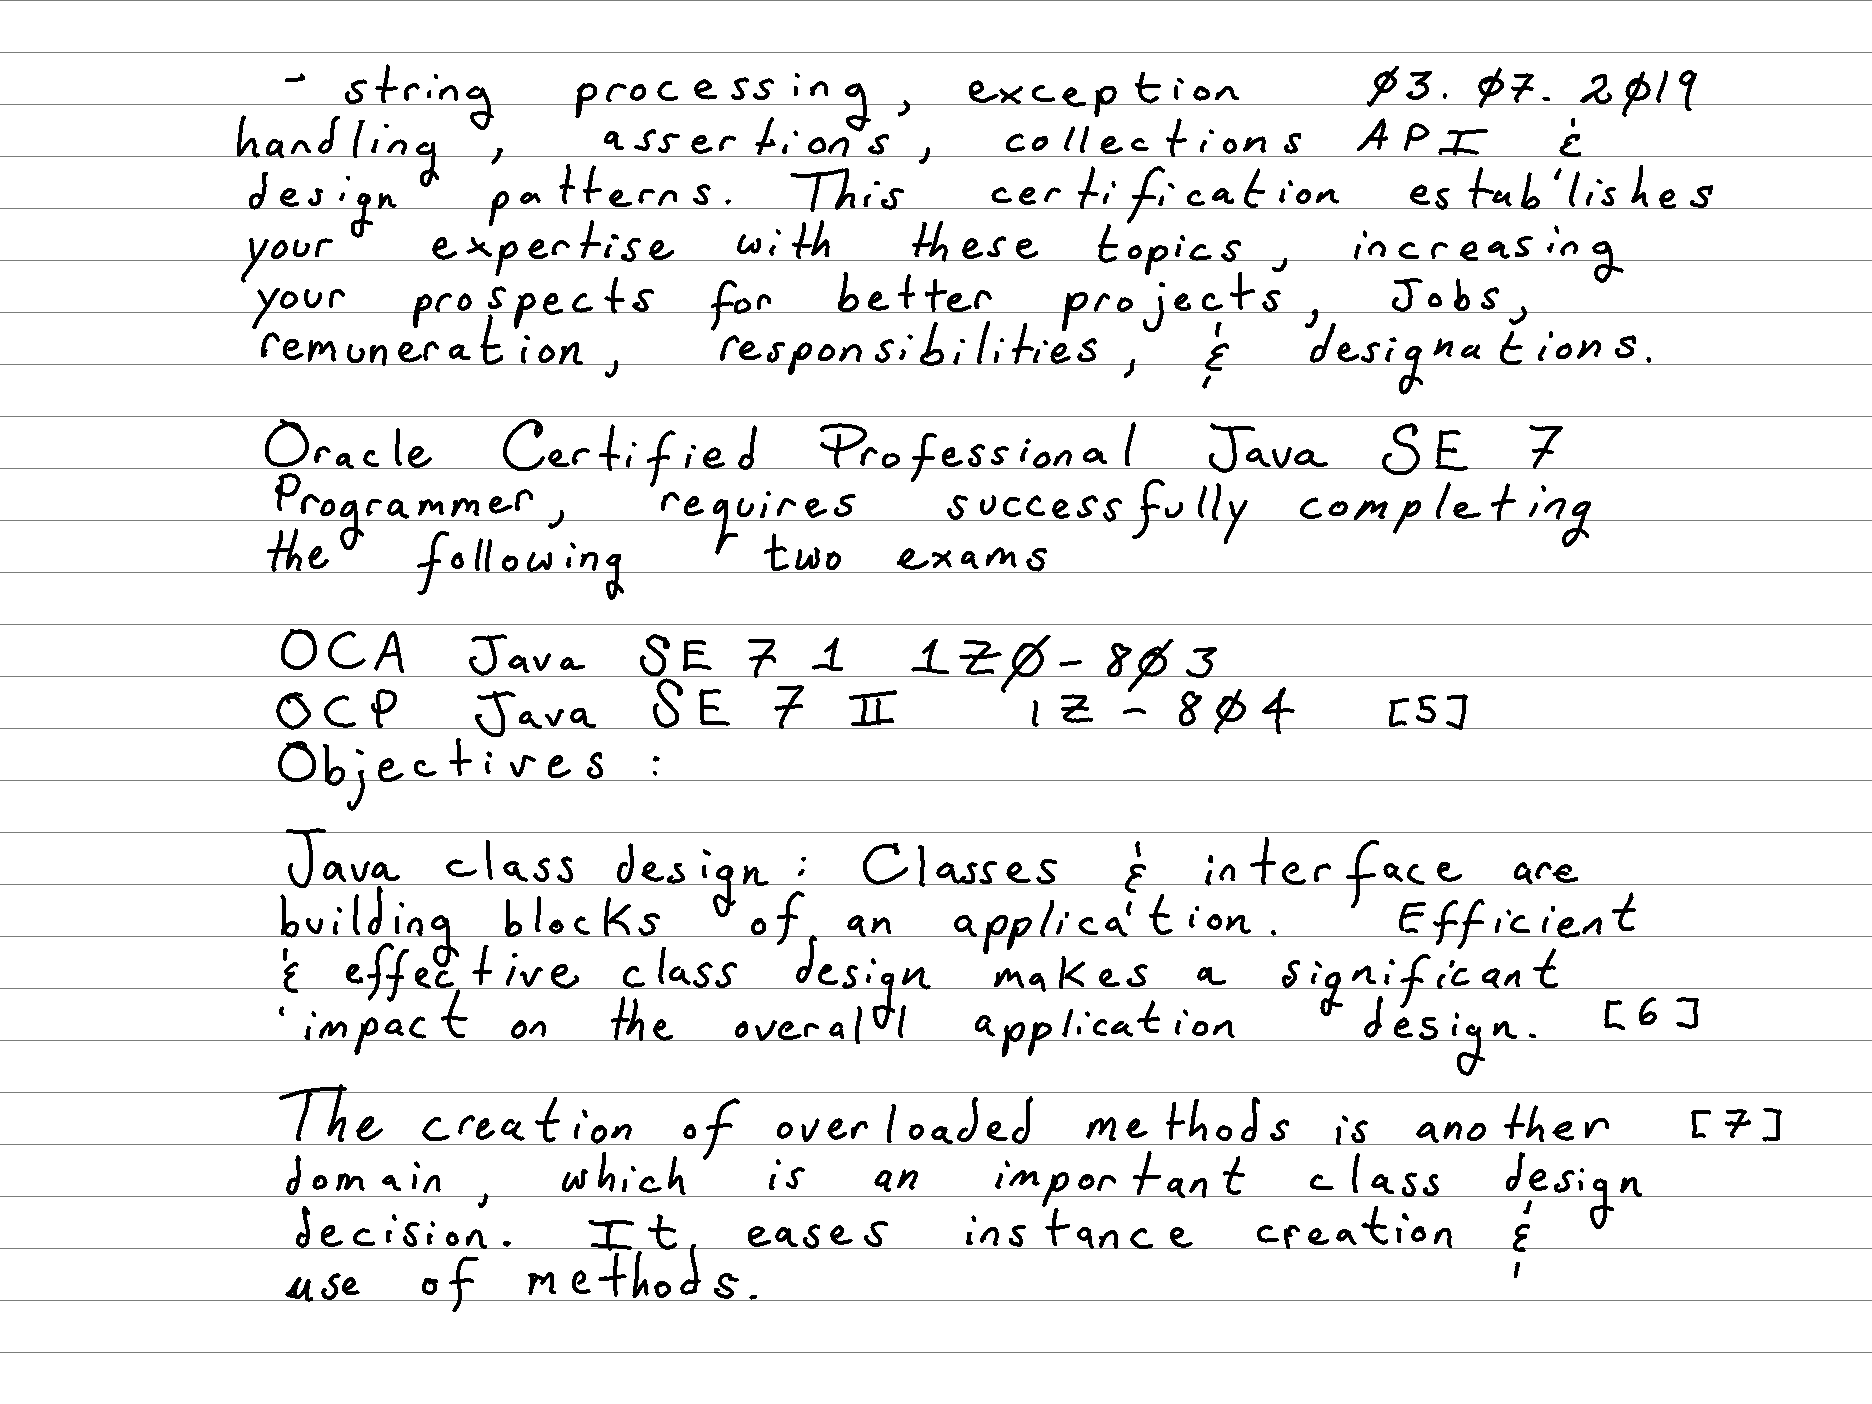 - string processing, exception 03.07.2019
handling, assertions, collections API &
design patterns. This certification estub'lishes
your expertise with these topics, increasing
your prospects for better projects, Jobs,
remuneration, responsibilities, & designations.
Oracle Certified Professional Java SE 7
Programmer, requires successfully completing
the following two exams
OCA Java SE 7 1 1Z0-803
OCP Java SE 7 II 1Z-804 [5]
Objectives :
Java class design : Classes & interface are
building blocks of an application. Efficient
& effective class design makes a significant
impact on the overall application design. [6]
The creation of overloaded methods is another [7]
domain, which is an important class design
decision. It, eases instance creation &
use of methods.